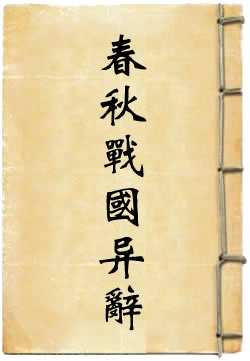 春秋戰國异辭